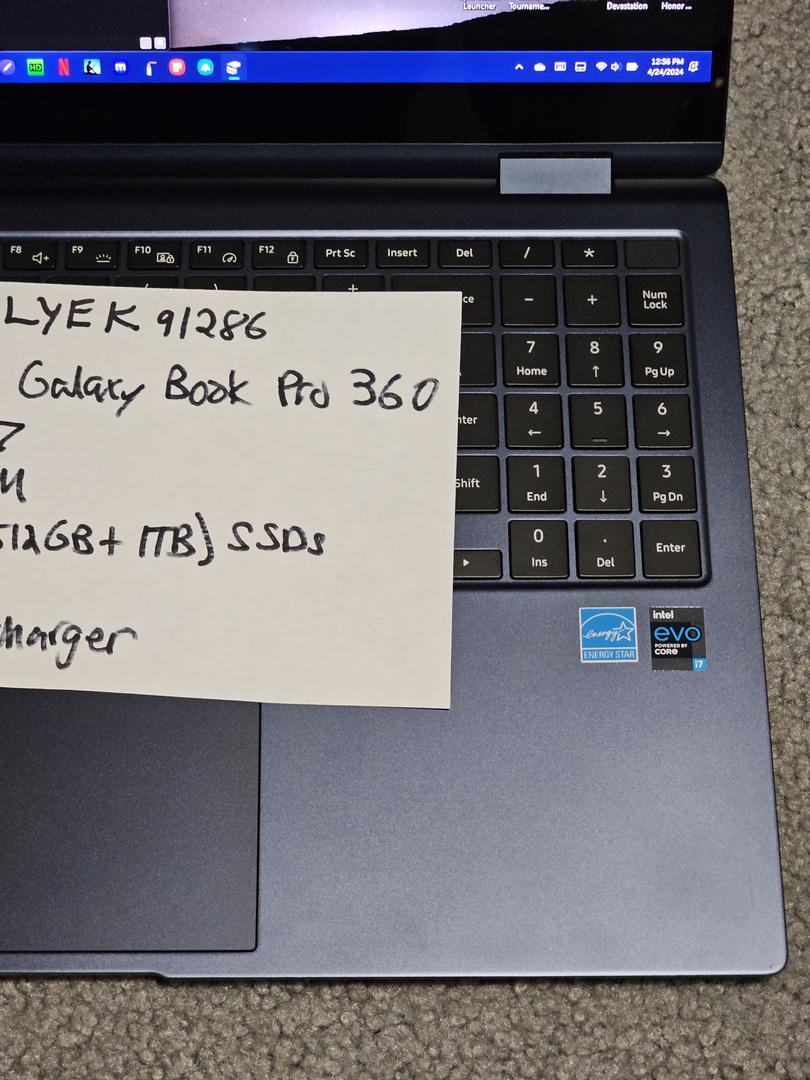 Launcher Tourname... Devastation Honor...
HD N m
12:56 PM
4/24/2024
F8 F9 F10 F11 F12 Prt Sc Insert Del / *
- + Num Lock
LYEK 91286
Galaxy Book Pro 360
7 Home 8 ↑ 9 Pg Up
4 ← 5 6 →
Shift 1 End 2 ↓ 3 Pg Dn
512GB + 1TB) SSDs
0 Ins . Del Enter
charger
energy
ENERGY STAR
intel
evo
POWERED BY
CORE
i7